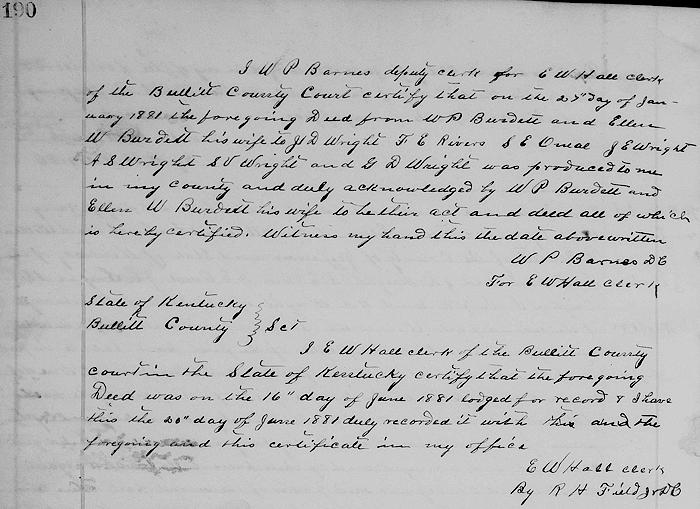 190
I W P Barnes deputy clerk for E W Hall clerk
of the Bullitt County Court certify that on the 27" day of Jan-
uary 1881 the foregoing Deed from W P Burdett and Ellen
W Burdett his wife to J D Wright F E Rivers S E Omal J E Wright
A S Wright S V Wright and G D Wright was produced to me
in my county and duly acknowledged by W P Burdett and
Ellen W Burdett his wife to be their act and deed all of which
is hereby certified. Witness my hand this the date above written
W P Barnes DC
For E W Hall Clerk
State of Kentucky
Bullitt County } Sct
I E W Hall clerk of the Bullitt County
court in the State of Kentucky certify that the foregoing
Deed was on the 16" day of June 1881 lodged for record & I have
this the 20" day of June 1881 duly recorded it with this and the
foregoing and this certificate in my office
E W Hall clerk
By R H Field Jr DC